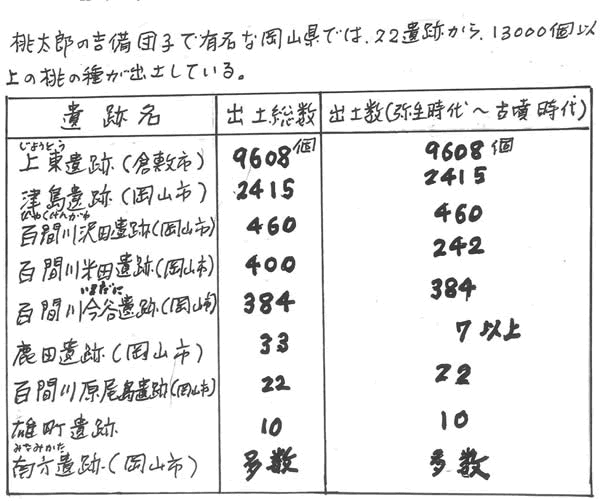 桃太郎の吉備団子で有名な岡山県では、22遺跡から、13000個以
上の桃の種が出土している。
遺跡名 出土総数 出土数(弥生時代~古墳時代)
じょうとう
上東遺跡(倉敷市) 9608個 9608個
津島遺跡(岡山市) 2415 2415
ひゃくけんがわ
百間川沢田遺跡(岡山市) 460 460
百間川米田遺跡(岡山市) 400 242
いまだに
百間川今谷遺跡(岡山市) 384 384
鹿田遺跡(岡山市) 33 7以上
百間川原尾島遺跡(岡山市) 22 22
雄町遺跡 10 10
みなみかた
南方遺跡(岡山市) 多数 多数